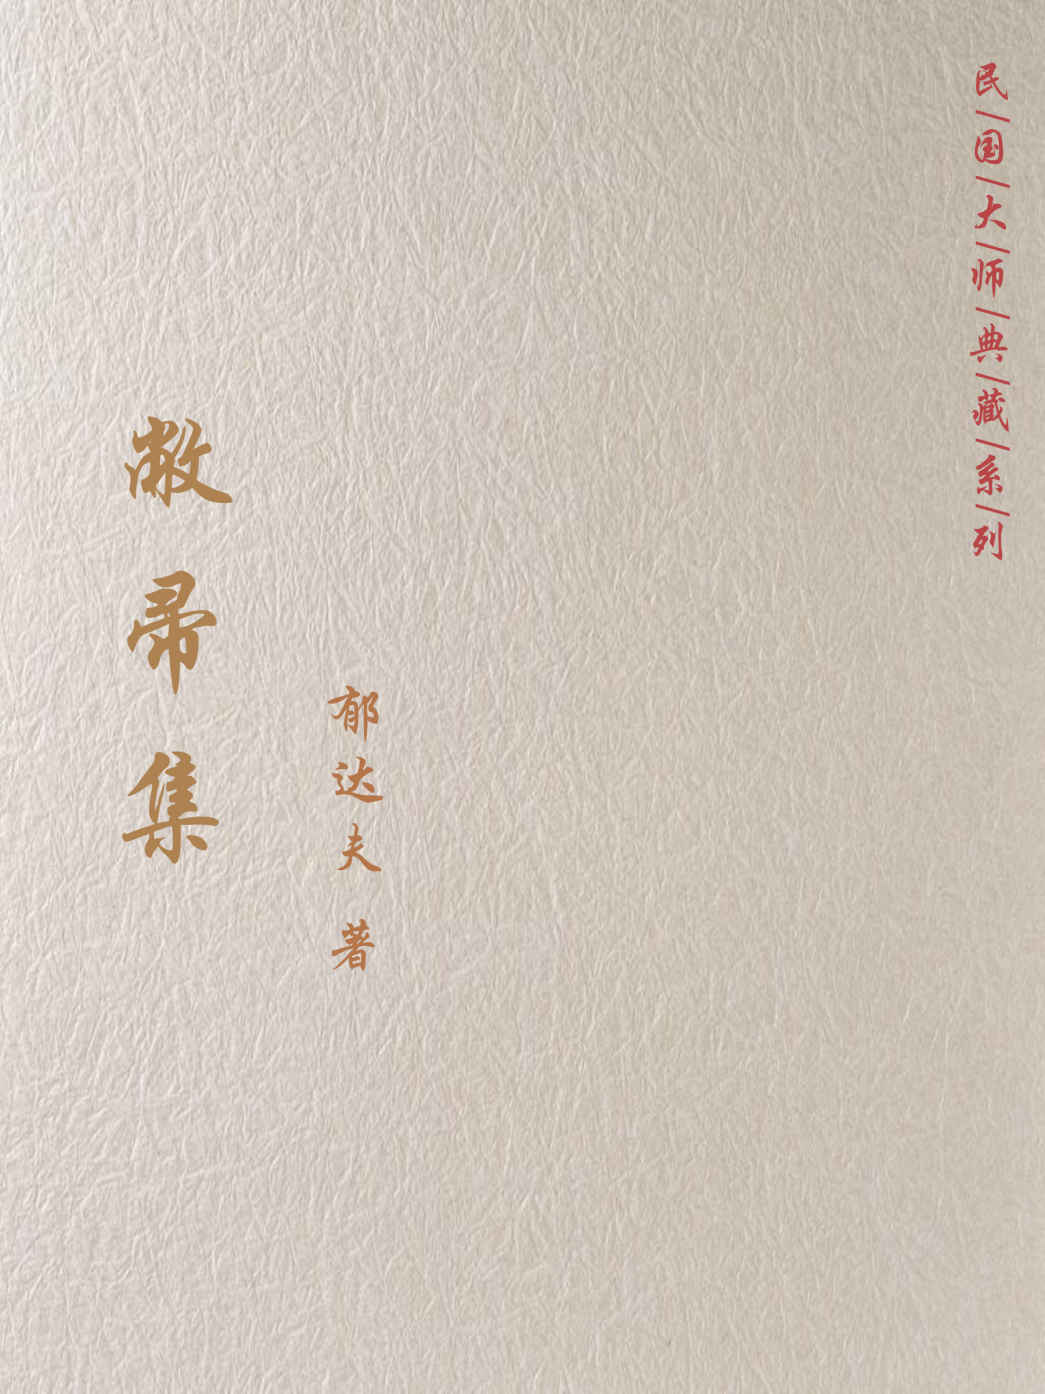 民/国/大/师/典/藏/系/列
敝帚集
郁达夫 著